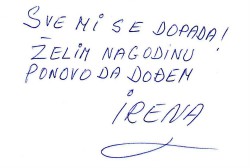 SVE MI SE DOPADA!
ŽELIM NAGODINU
PONOVO DA DOĐEM
IRENA